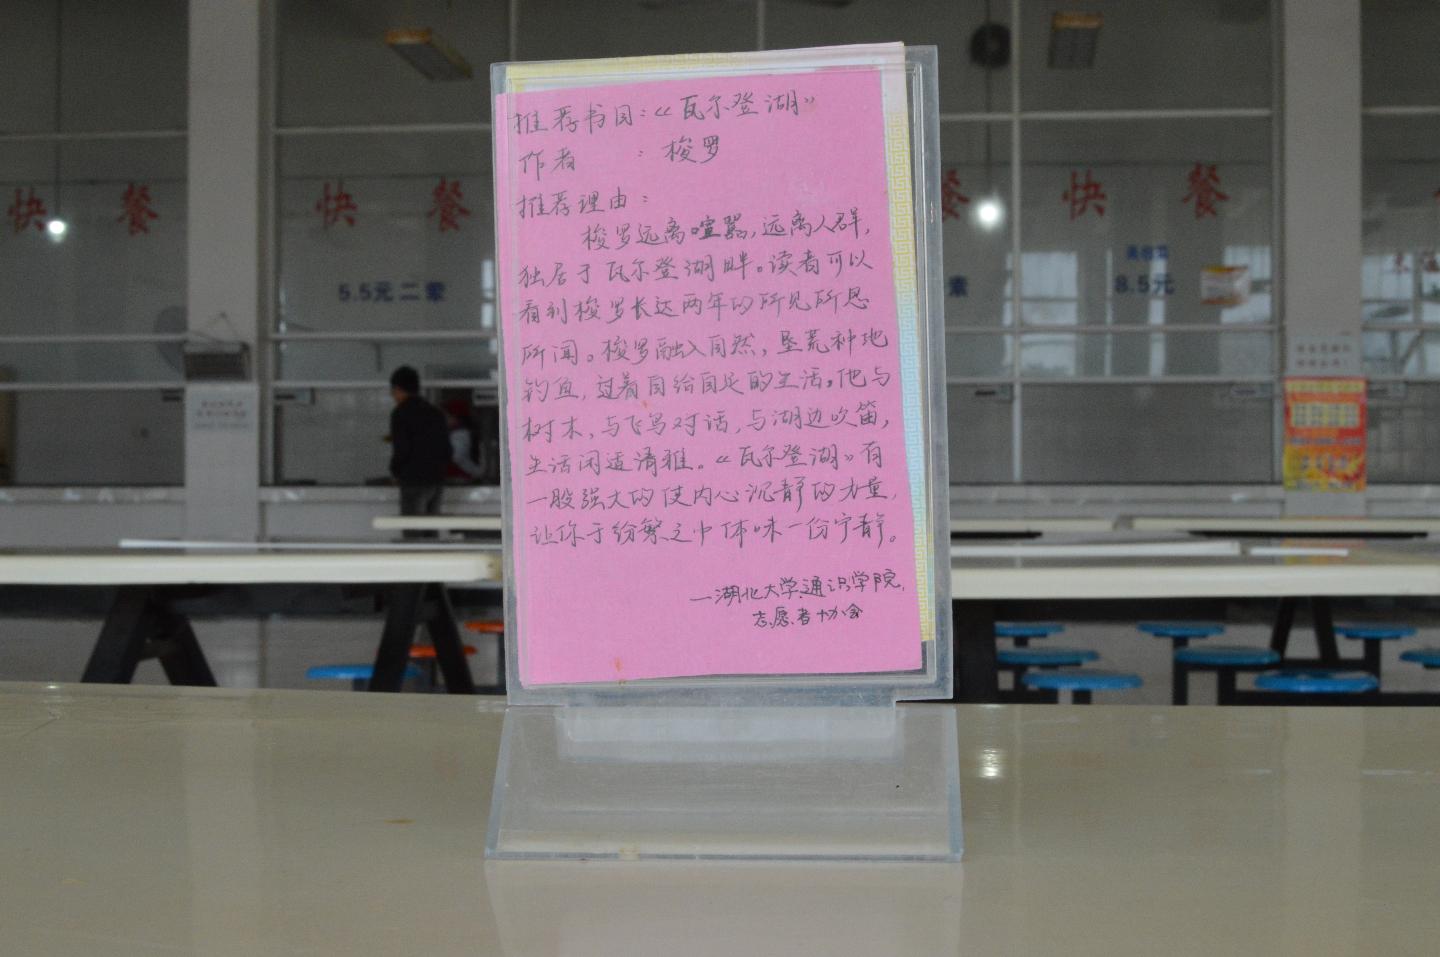 推荐书目：《瓦尔登湖》
作者　　：梭罗
推荐理由：
梭罗远离喧嚣，远离人群，
独居于瓦尔登湖畔。读者可以
看到梭罗长达两年的所见所思
所闻。梭罗融入自然，垦荒种地
钓鱼，过着自给自足的生活。他与
树木，与飞鸟对话，与湖边吹笛，
生活闲适清雅。《瓦尔登湖》有
一股强大的使内心沉静的力量，
让你于纷繁之中体味一份宁静。
—湖北大学通识学院，
志愿者协会
快 餐
快 餐
餐
快 餐
5.5元 二荤
素
8.5元